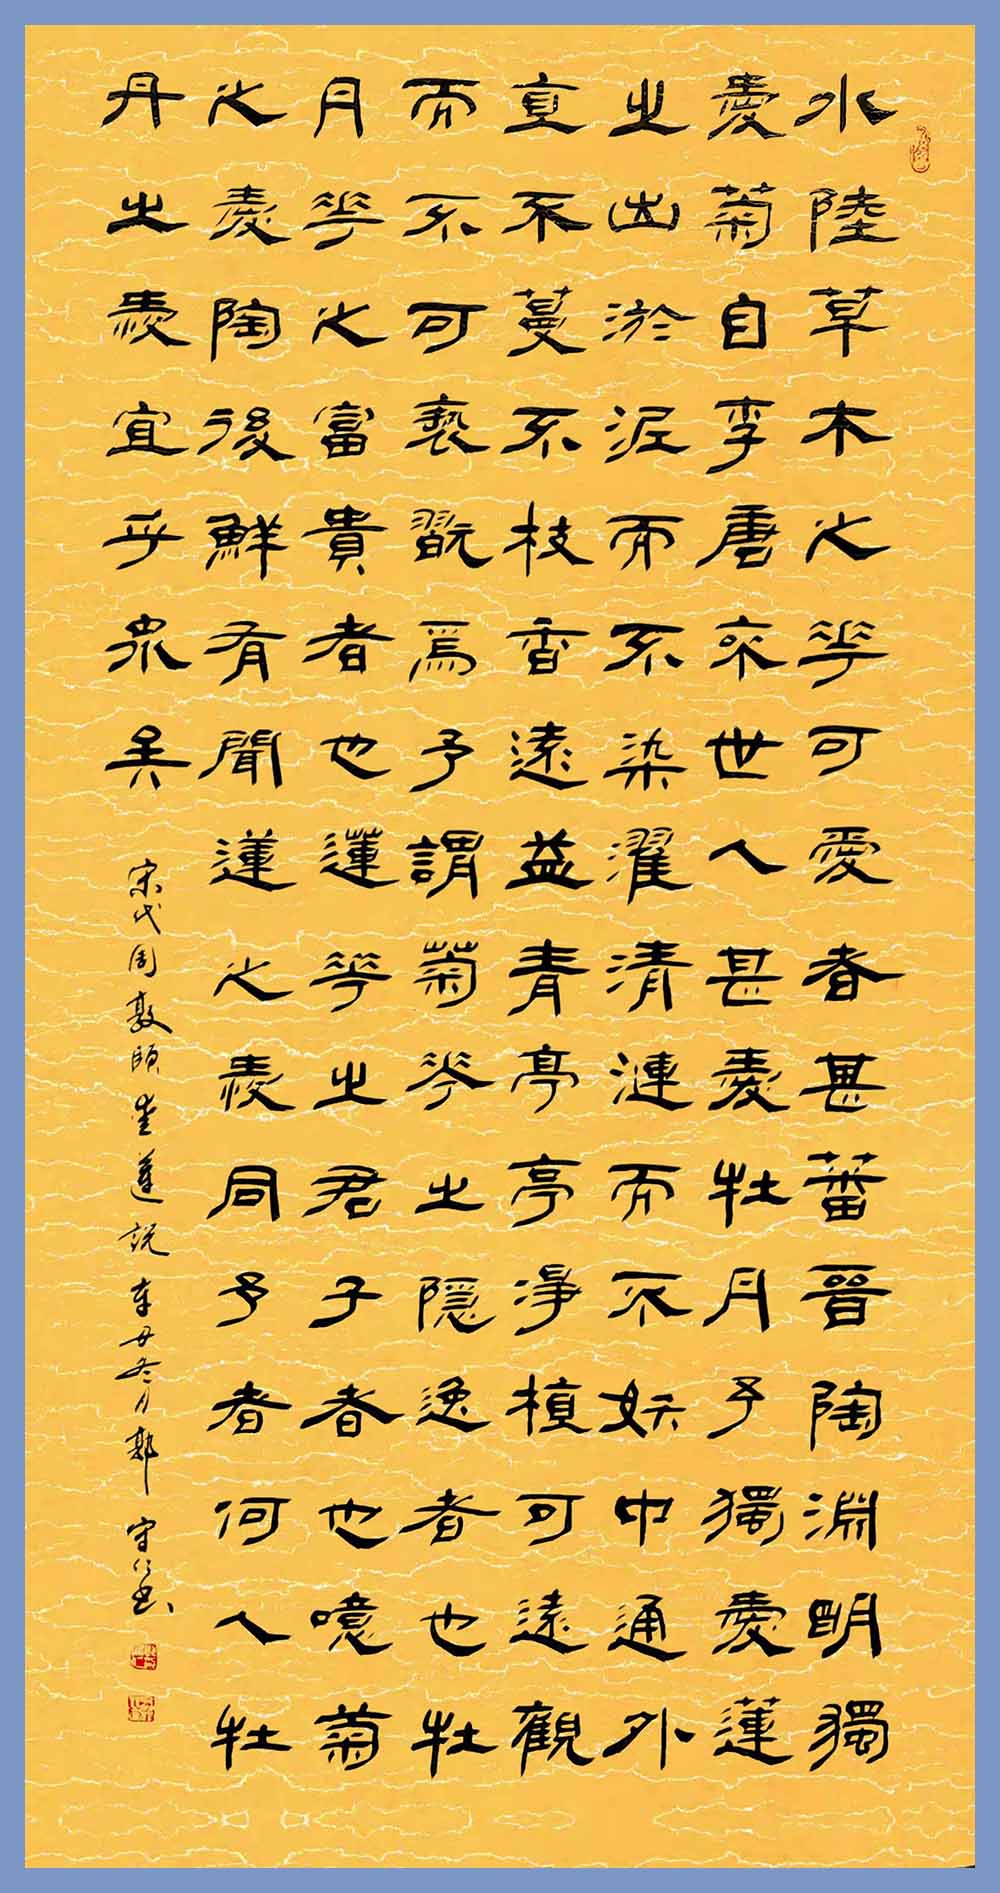 水陸草木之花可愛者甚蕃晉陶淵明獨
愛菊自李唐來世人甚愛牡丹予獨愛蓮
之出淤泥而不染濯清漣而不妖中通外
直不蔓不枝香遠益青亭亭淨植可遠觀
而不可褻翫焉予謂菊花之隱逸者也牡
丹花之富貴者也蓮花之君子者也噫菊
之愛陶後鮮有聞蓮之愛同予者何人牡
丹之愛宜乎眾矣
宋代周敦頤愛蓮說辛丑冬月郭守仁書